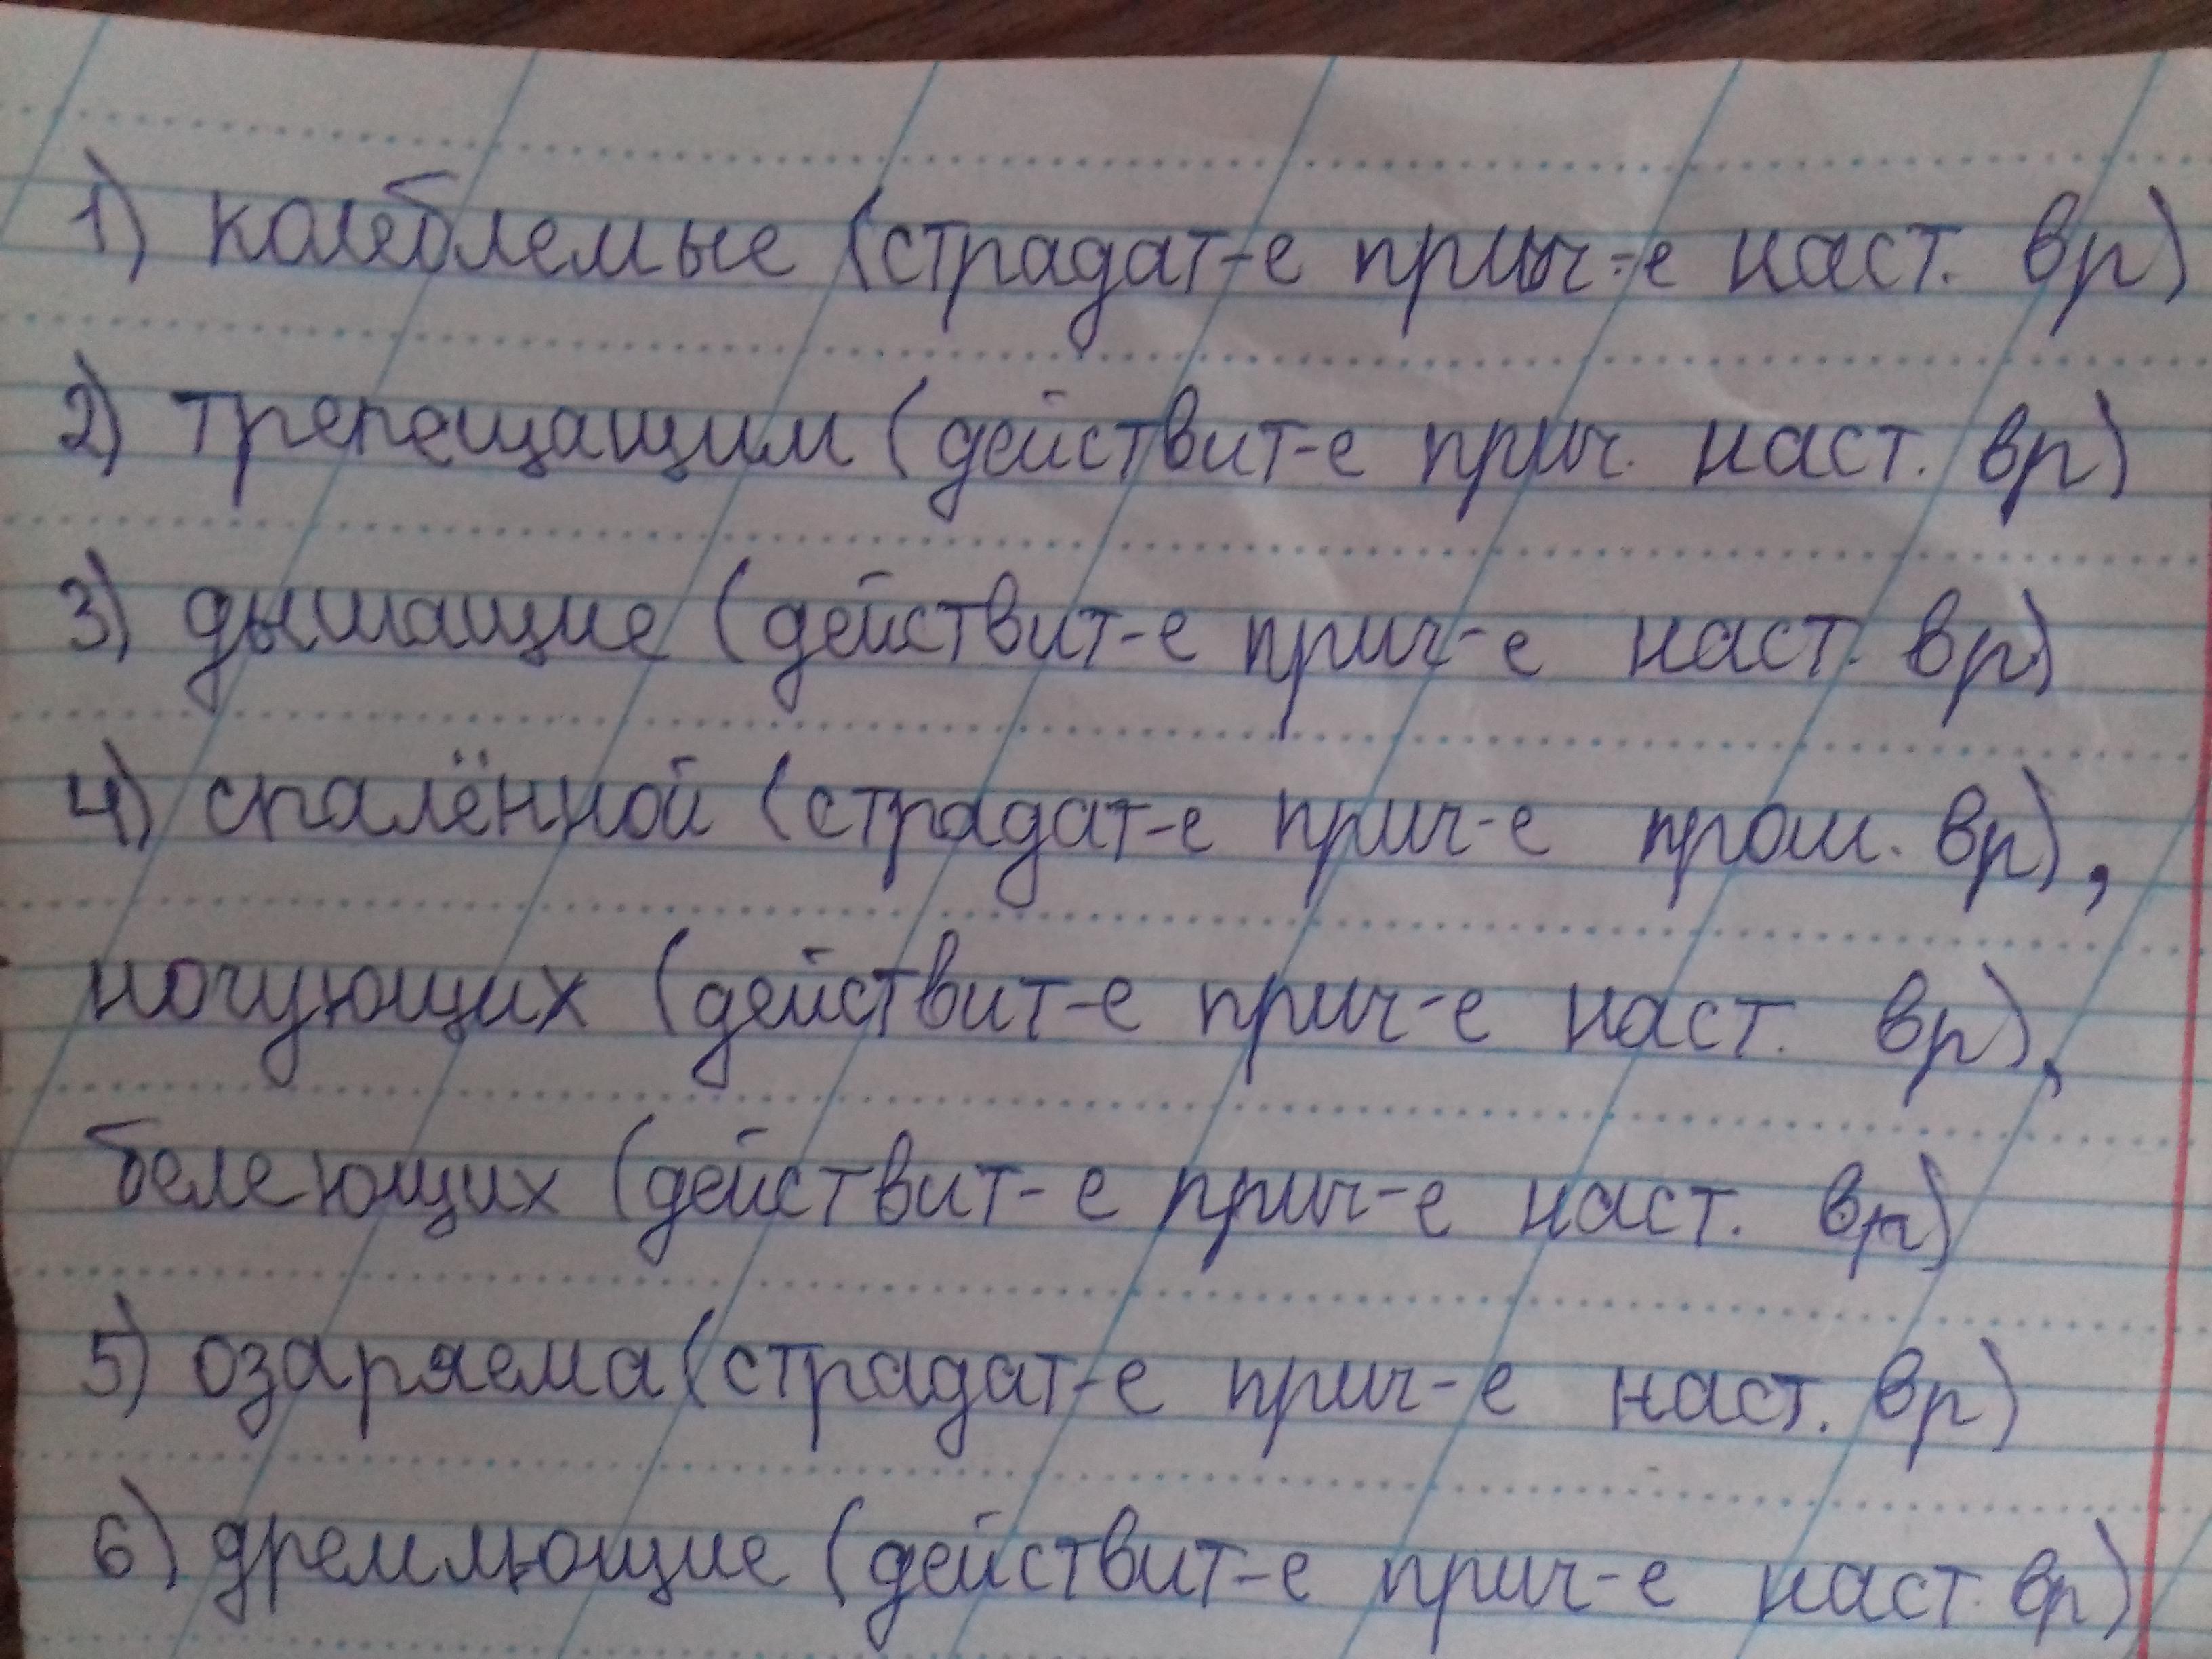 1) колеблемые (страдат-е прич-е наст. вр)
2) трепещащим (действит-е прич. наст. вр)
3) дышащие (действит-е прич-е наст. вр)
4) спалённой (страдат-е прич-е прош. вр),
ночующих (действит-е прич-е наст. вр),
белеющих (действит-е прич-е наст. вр)
5) озаряема (страдат-е прич-е наст. вр)
6) дремлющие (действит-е прич-е наст. вр)